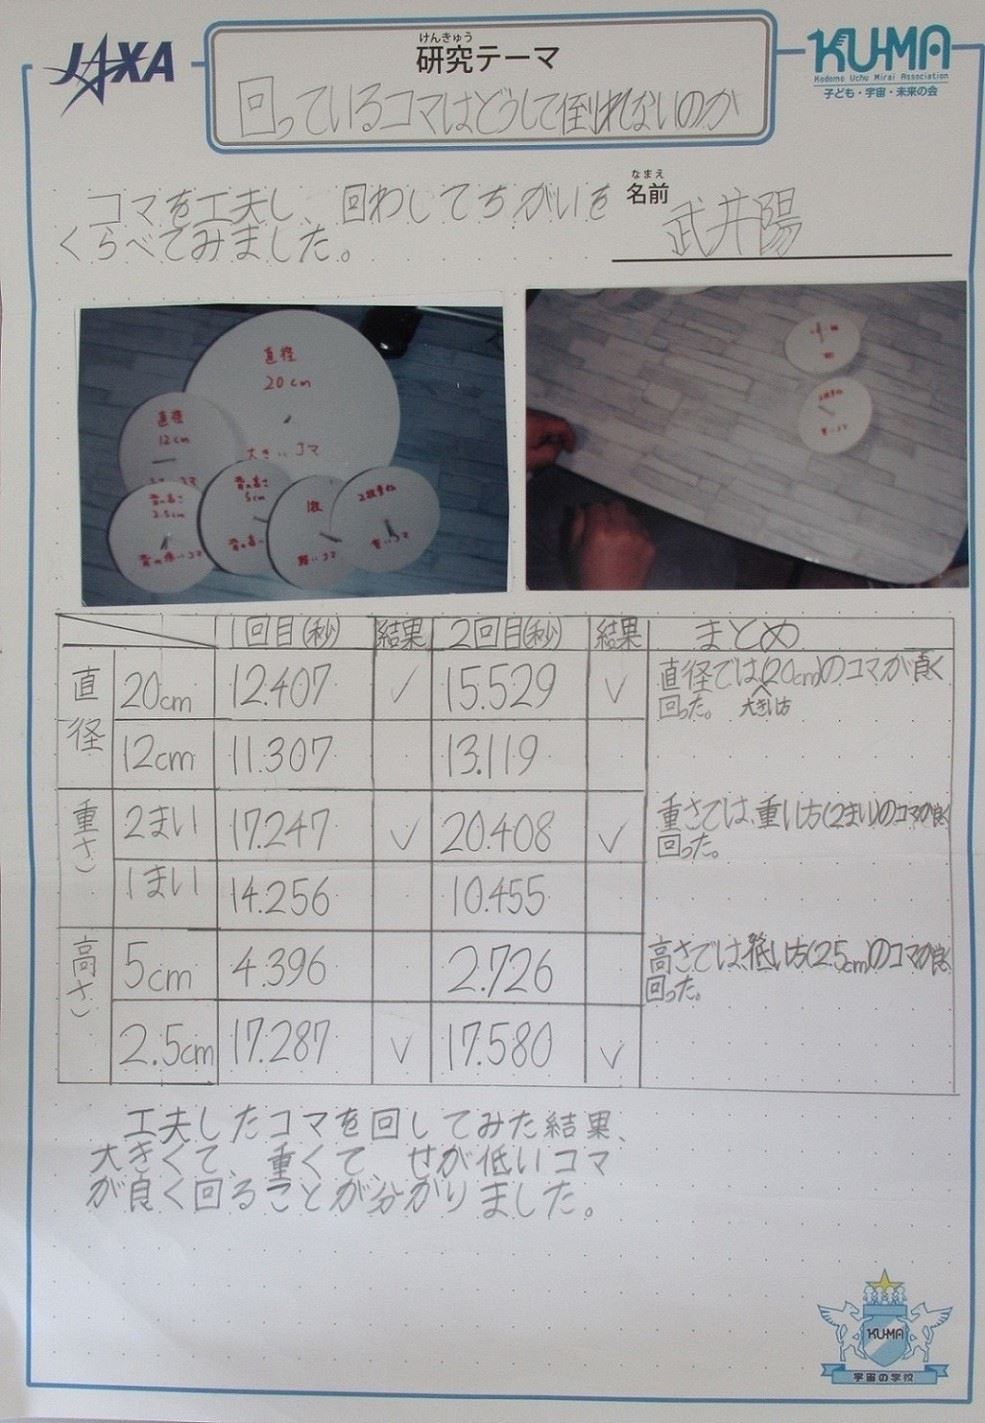 JAXA
けんきゅう
研究テーマ
KU-MA
Kodomo Uchu Mirai Association
子ども・宇宙・未来の会
回っているコマはどうして倒れないのか
コマを工夫し、回わしてちがいを
くらべてみました。
なまえ
名前
武井陽
直径
20cm
大きいコマ
直径
12cm
背の高さ
2.5cm
背の低いコマ
背の高さ
5cm
背の高い
1枚
軽いコマ
2枚重ね
重いコマ
2枚重ね
重いコマ
1回目(秒) 結果 2回目(秒) 結果 まとめ
直径 20cm 12.407 ✓ 15.529 ✓ 直径では(20cm)のコマが良く
回った。 大きい方
12cm 11.307 13.119
重さ 2まい 17.247 ✓ 20.408 ✓ 重さでは、重い方(2まい)のコマが良く
回った。
1まい 14.256 10.455
高さ 5cm 4.396 2.726 高さでは、低い方(2.5cm)のコマが良く
回った。
2.5cm 17.287 ✓ 17.580 ✓
工夫したコマを回してみた結果、
大きくて、重くて、せが低いコマ
が良く回ることが分かりました。
KU-MA
宇宙の学校